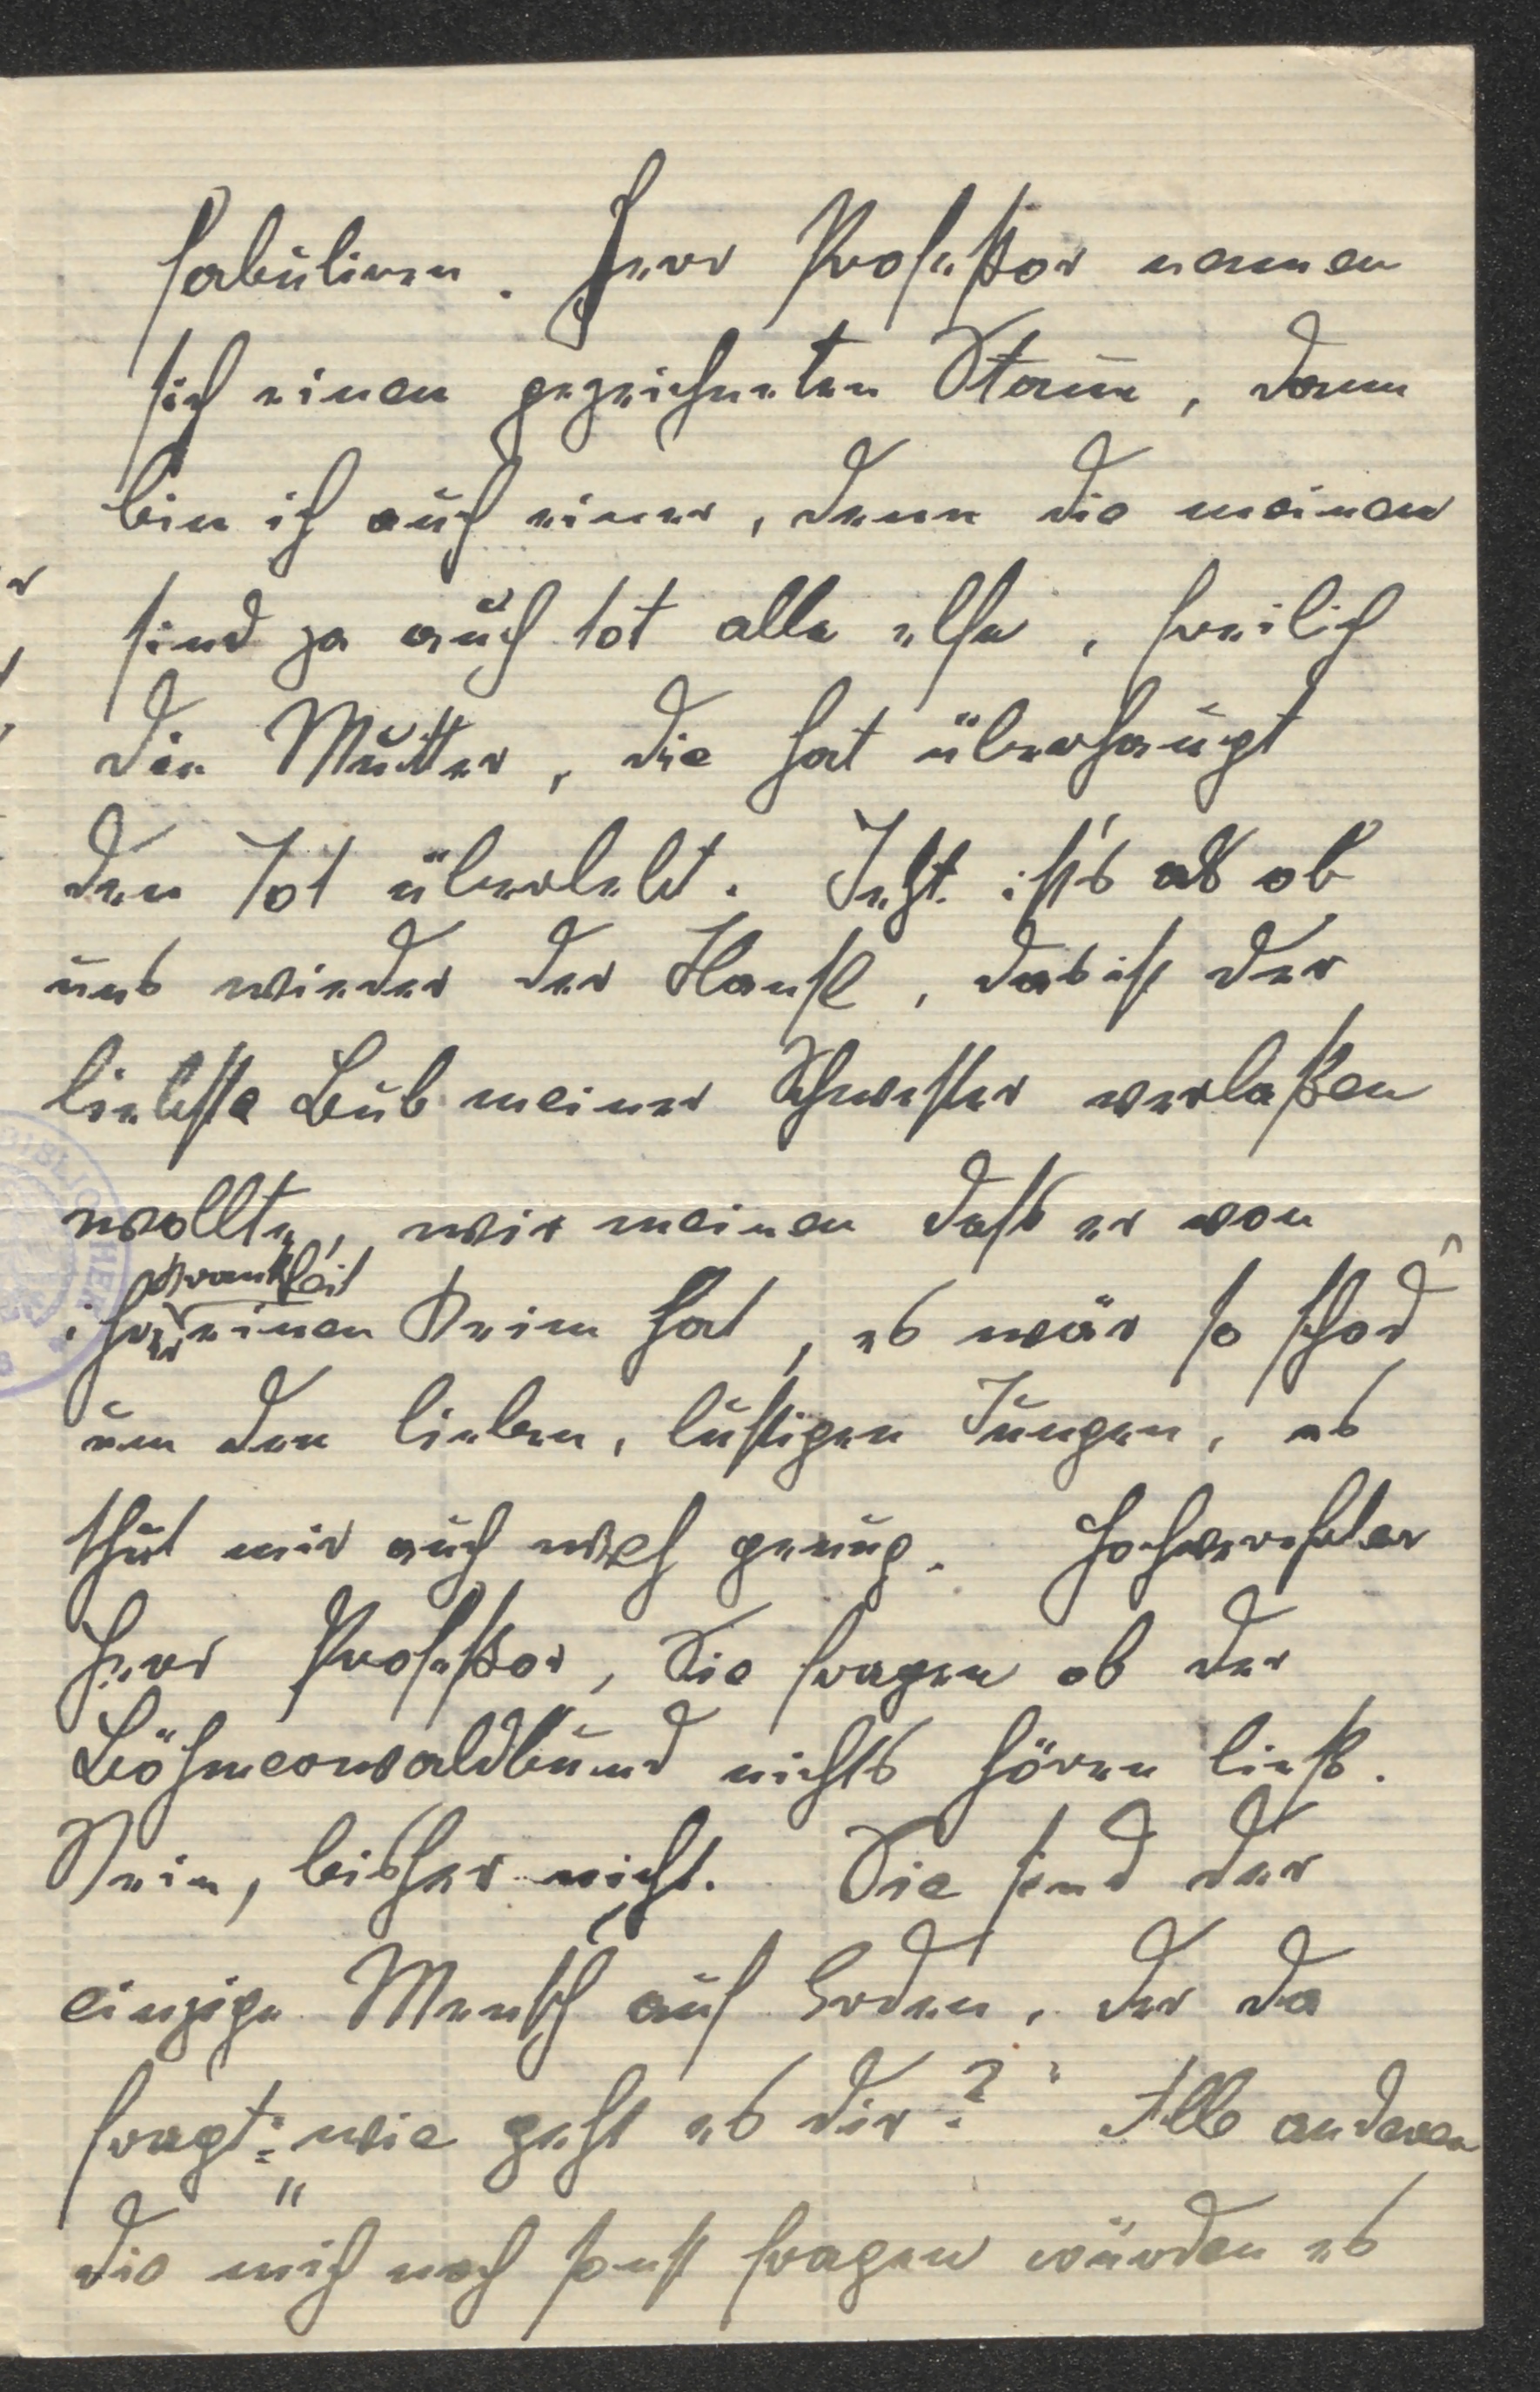 fabuliren. Herr Profeßor nennen
sich einen gezeichneten Stam̄, dann
bin ich auch einer, denn die meinen
sind ja auch tot alle elfe, freilich
die Mutter, die hat überhaupt
den Tot überlebt. Jetzt ist's als ob
uns wieder der Hansl, das ist der
liebste Bub meiner Schwester verlaßen
wollte, wir meinen daß er von
ihrer Krankheit einen Keim hat, es wär so schad
um den lieben, lustigen Jungen, es
thut mir auch weh genug. Hochverehrter
Herr Profeßor, Sie fragen ob der
Böhmerwaldbund nichts hören ließ.
Nein, bisher nicht. Sie sind der
einzige Mensch auf Erden, der da
fragt: „wie geht es dir?" Alle anderen
die mich noch sonst fragen würden es